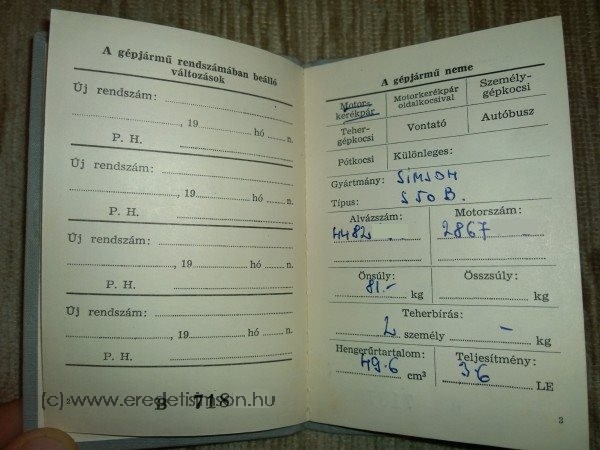 A gépjármű rendszámában beálló
változások
Új rendszám:
, 19 hó n.
P. H.
Új rendszám:
, 19 hó n.
P. H.
Új rendszám:
, 19 hó n.
P. H.
Új rendszám:
, 19 hó n.
P. H.
B 718
(c) www.eredetisimson.hu
A gépjármű neme
Motor-
kerékpár
Motorkerékpár
oldalkocsival
Személy-
gépkocsi
Teher-
gépkocsi
Vontató
Autóbusz
Pótkocsi
Különleges:
Gyártmány: SIMSON
Típus: S50B.
Alvázszám: Motorszám:
4482 2867
Önsúly: Összsúly:
81.- kg kg
Teherbírás:
2 személy - kg
Hengerűrtartalom: Teljesítmény:
49.6 cm³ 3.6 LE
3